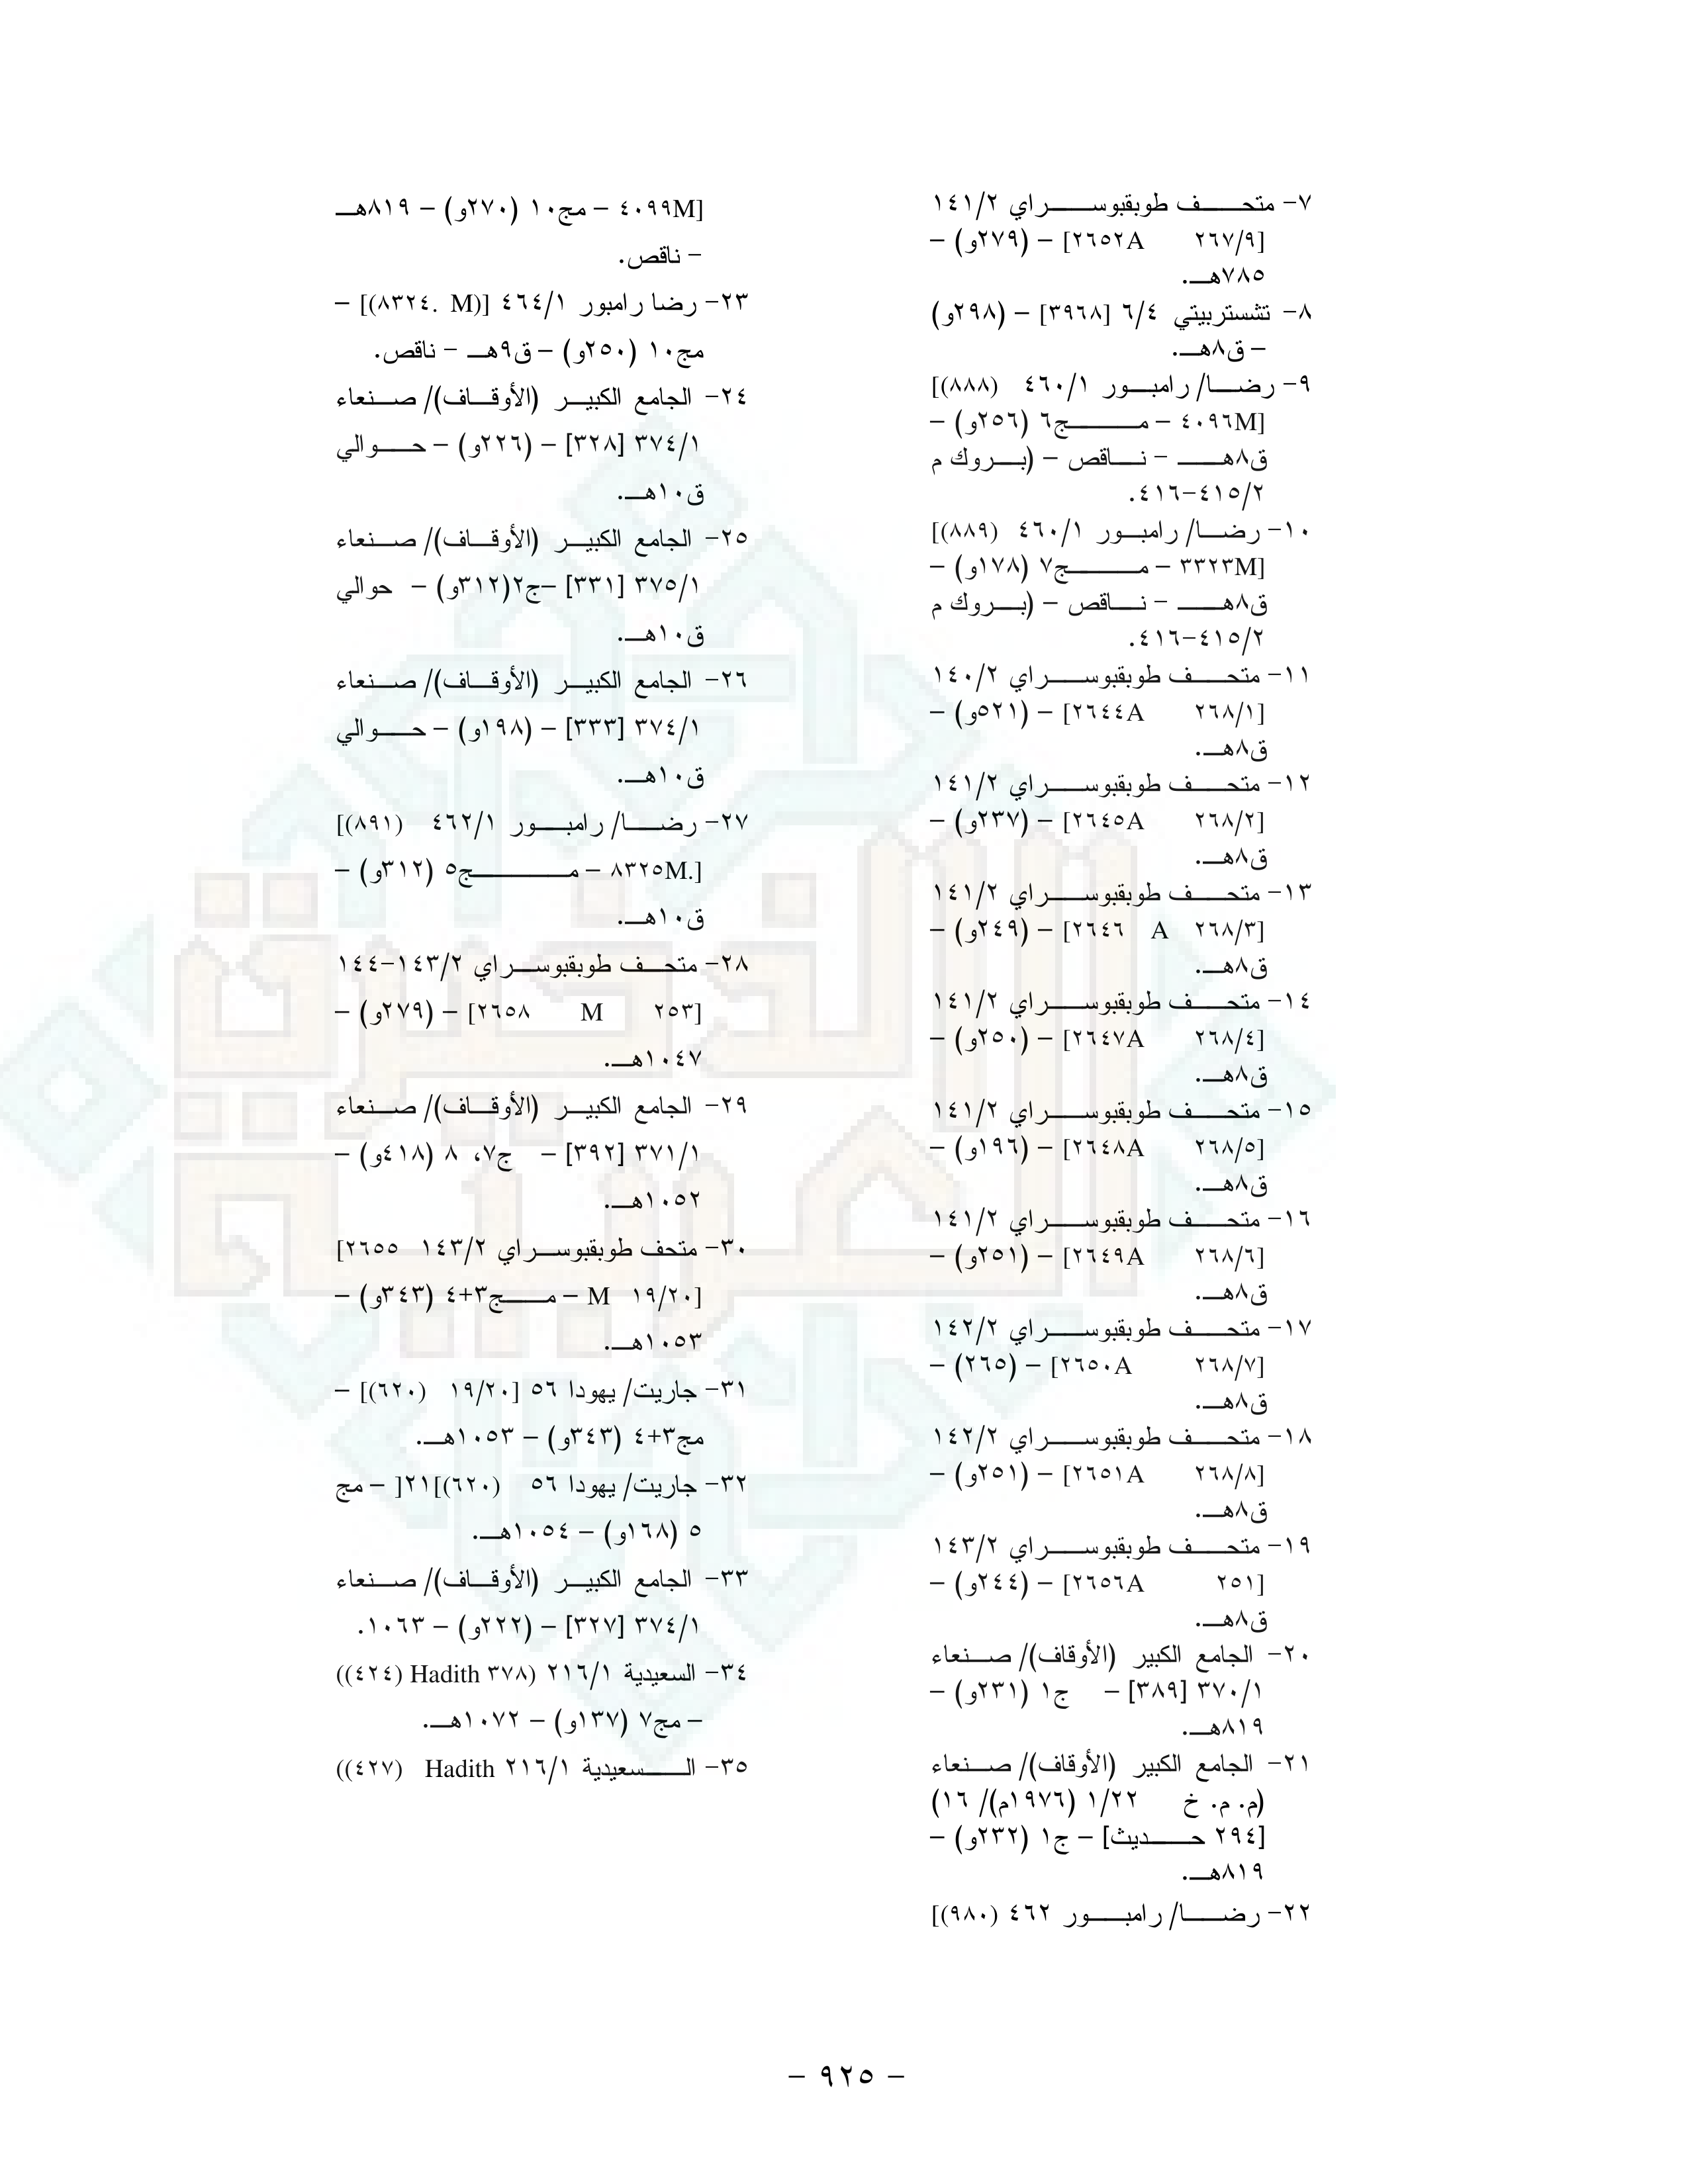 ٧- متحف طوبقبوسراي ١٤١/٢
[٢٦٧/٩ ٢٦٥٢A] – (٢٧٩و) –
٧٨٥هـ.
٨- تشستربيتي ٦/٤ [٣٩٦٨] – (٢٩٨و)
– ق٨هـ.
٩- رضا/ رامبور ٤٦٠/١ (٨٨٨)]
[٤٠٩٦M – مج٦ (٢٥٦و) –
ق٨هـ – ناقص – (بروك م
٤١٥/٢-٤١٦.
١٠- رضا/ رامبور ٤٦٠/١ (٨٨٩)]
[٣٣٢٣M – مج٧ (١٧٨و) –
ق٨هـ – ناقص – (بروك م
٤١٥/٢-٤١٦.
١١- متحف طوبقبوسراي ١٤٠/٢
[٢٦٨/١ ٢٦٤٤A] – (٥٢١و) –
ق٨هـ.
١٢- متحف طوبقبوسراي ١٤١/٢
[٢٦٨/٢ ٢٦٤٥A] – (٢٣٧و) –
ق٨هـ.
١٣- متحف طوبقبوسراي ١٤١/٢
[٢٦٨/٣ A ٢٦٤٦] – (٢٤٩و) –
ق٨هـ.
١٤- متحف طوبقبوسراي ١٤١/٢
[٢٦٨/٤ ٢٦٤٧A] – (٢٥٠و) –
ق٨هـ.
١٥- متحف طوبقبوسراي ١٤١/٢
[٢٦٨/٥ ٢٦٤٨A] – (١٩٦و) –
ق٨هـ.
١٦- متحف طوبقبوسراي ١٤١/٢
[٢٦٨/٦ ٢٦٤٩A] – (٢٥١و) –
ق٨هـ.
١٧- متحف طوبقبوسراي ١٤٢/٢
[٢٦٨/٧ ٢٦٥٠A] – (٢٦٥) –
ق٨هـ.
١٨- متحف طوبقبوسراي ١٤٢/٢
[٢٦٨/٨ ٢٦٥١A] – (٢٥١و) –
ق٨هـ.
١٩- متحف طوبقبوسراي ١٤٣/٢
[٢٥١ ٢٦٥٦A] – (٢٤٤و) –
ق٨هـ.
٢٠- الجامع الكبير (الأوقاف)/ صنعاء
٣٧٠/١ [٣٨٩] – ج١ (٢٣١و) –
٨١٩هـ.
٢١- الجامع الكبير (الأوقاف)/ صنعاء
(م. م. خ ١/٢٢ (١٩٧٦م)/ ١٦)
[٢٩٤ حديث] – ج١ (٢٣٢و) –
٨١٩هـ.
٢٢- رضا/ رامبور ٤٦٢ (٩٨٠)]
[٤٠٩٩M – مج١٠ (٢٧٠و) – ٨١٩هـ
– ناقص.
٢٣- رضا رامبور ٤٦٤/١ [(M .٨٣٢٤)] –
مج١٠ (٢٥٠و) – ق٩هـ – ناقص.
٢٤- الجامع الكبير (الأوقاف)/ صنعاء
٣٧٤/١ [٣٢٨] – (٢٢٦و) – حوالي
ق١٠هـ.
٢٥- الجامع الكبير (الأوقاف)/ صنعاء
٣٧٥/١ [٣٣١] –ج٢(٣١٢و) – حوالي
ق١٠هـ.
٢٦- الجامع الكبير (الأوقاف)/ صنعاء
٣٧٤/١ [٣٣٣] – (١٩٨و) – حوالي
ق١٠هـ.
٢٧- رضا/ رامبور ٤٦٢/١ (٨٩١)]
[.٨٣٢٥M – مج٥ (٣١٢و) –
ق١٠هـ.
٢٨- متحف طوبقبوسراي ١٤٣/٢-١٤٤
[٢٥٣ M ٢٦٥٨] – (٢٧٩و) –
١٠٤٧هـ.
٢٩- الجامع الكبير (الأوقاف)/ صنعاء
٣٧١/١ [٣٩٢] – ج٧، ٨ (٤١٨و) –
١٠٥٢هـ.
٣٠- متحف طوبقبوسراي ١٤٣/٢ ٢٦٥٥]
[١٩/٢٠ M – مج٣+٤ (٣٤٣و) –
١٠٥٣هـ.
٣١- جاريت/ يهودا ٥٦ [١٩/٢٠ (٦٢٠)] –
مج٣+٤ (٣٤٣و) – ١٠٥٣هـ.
٣٢- جاريت/ يهودا ٥٦ (٦٢٠)]٢١[ – مج
٥ (١٦٨و) – ١٠٥٤هـ.
٣٣- الجامع الكبير (الأوقاف)/ صنعاء
٣٧٤/١ [٣٢٧] – (٢٢٢و) – ١٠٦٣.
٣٤- السعيدية ٢١٦/١ (٣٧٨ Hadith (٤٢٤))
– مج٧ (١٣٧و) – ١٠٧٢هـ.
٣٥- السعيدية ٢١٦/١ Hadith (٤٢٧))
– ٩٢٥ –
الذخيرة
العربية